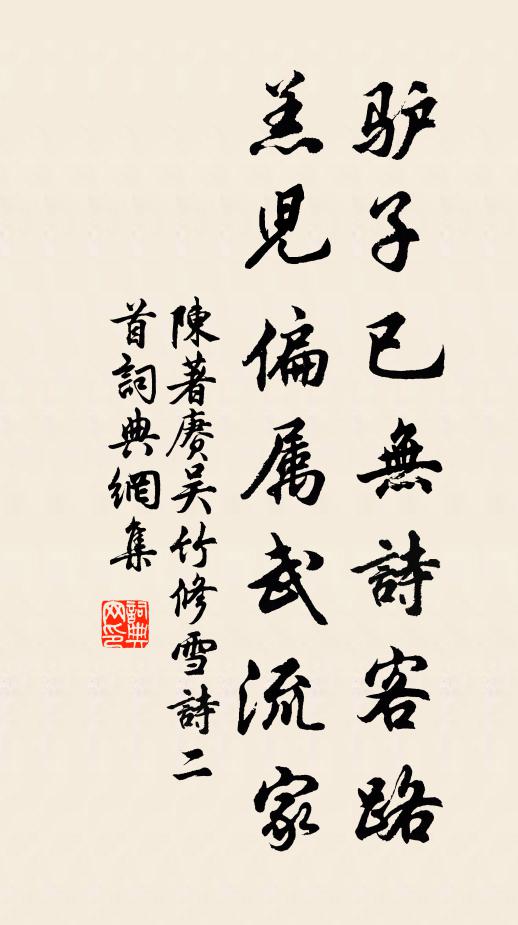 驴子已無詩客路
羔児偏属武流家
陳著賡吴竹修雪詩二
首詞典網集
詞典
网印